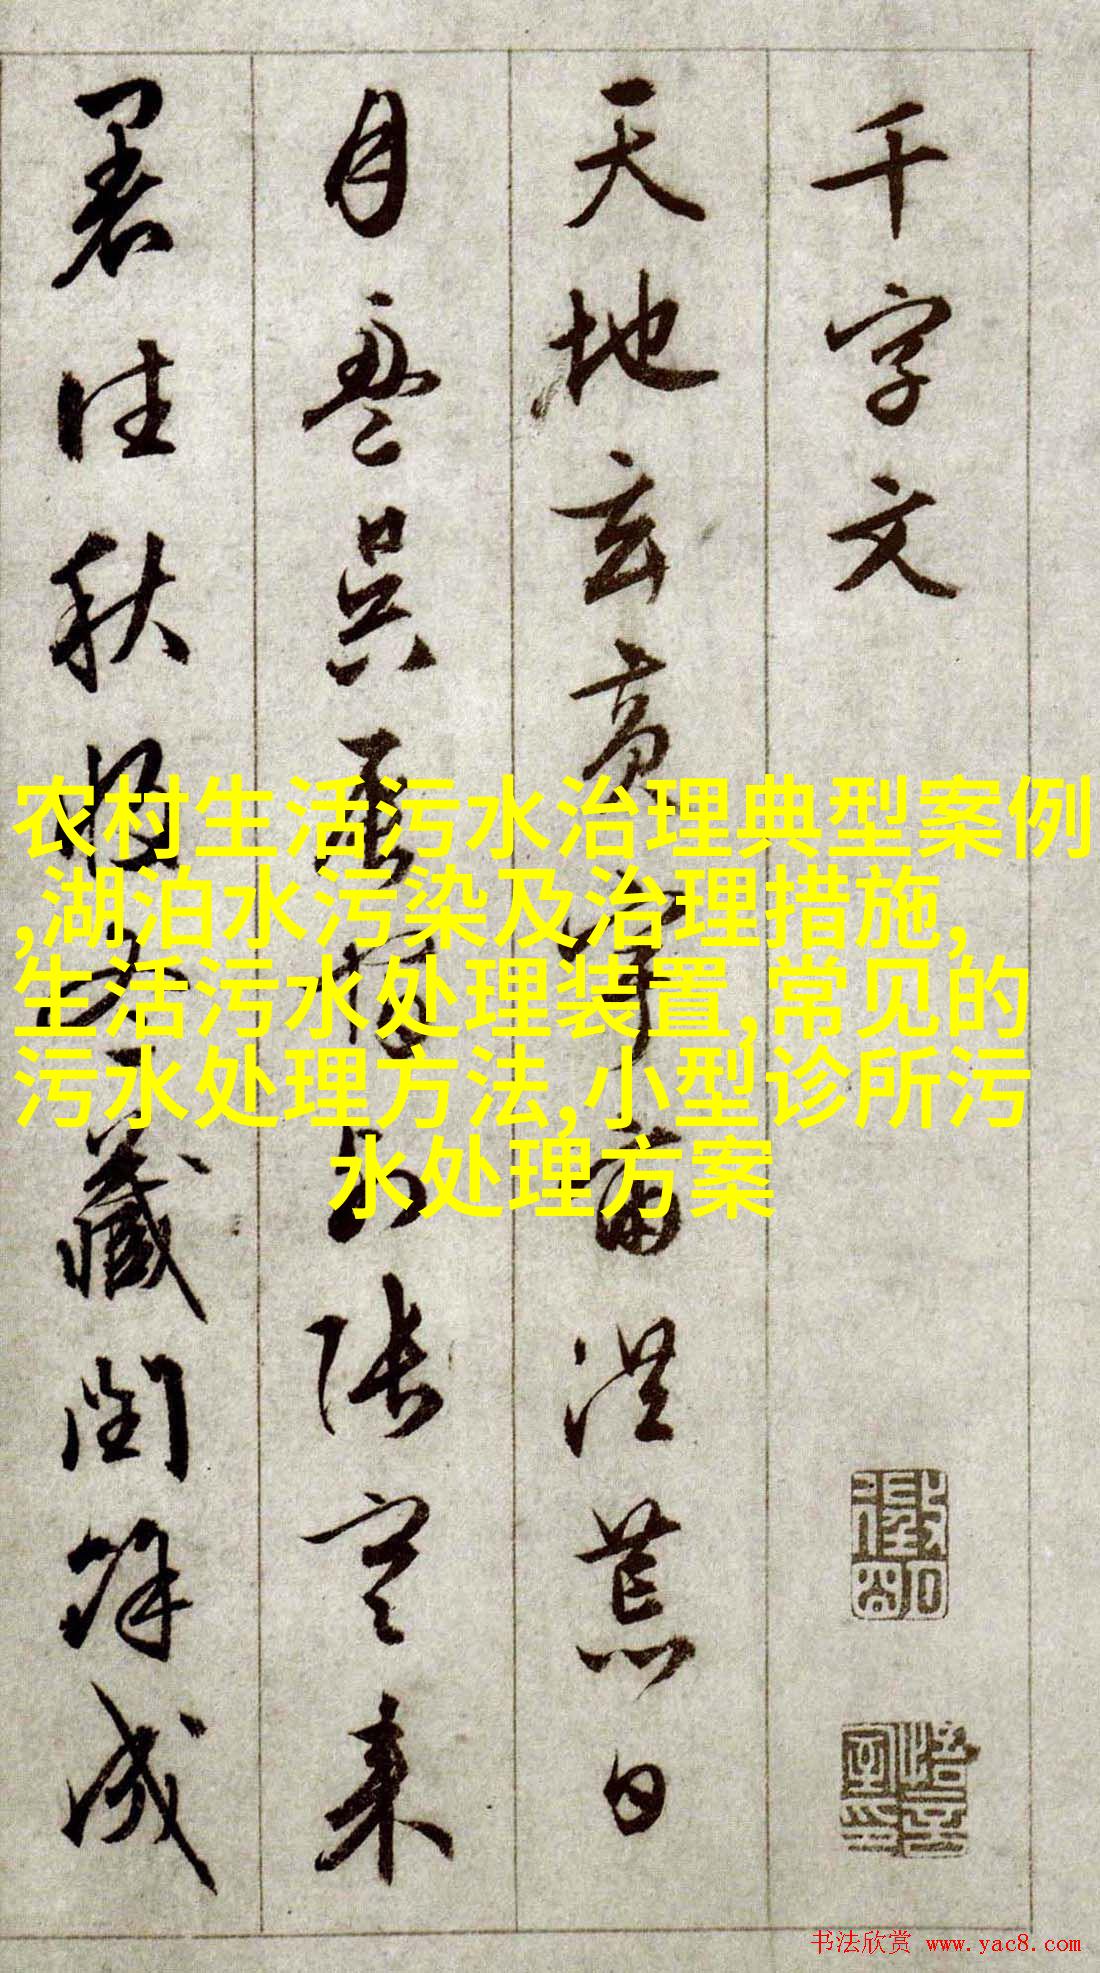 千字文
天地玄黄宇宙洪荒日
月盈昃辰宿列张寒来
暑往秋收冬藏闰馀成
农村生活污水治理典型案例
,湖泊水污染及治理措施,
生活污水处理装置,常见的
污水处理方法,小型诊所污
水处理方案
书法欣赏 www.yac8.com